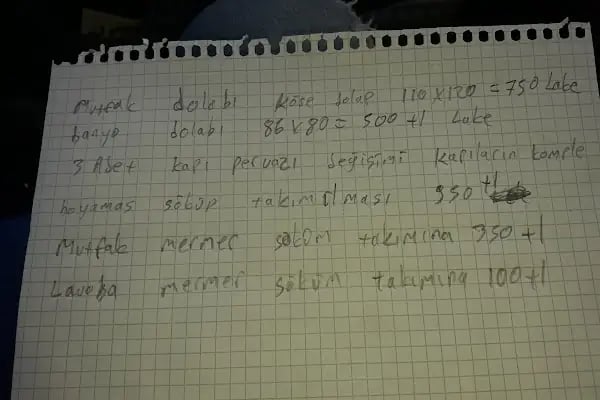 Mutfak dolabı köşe dolap 110x120 = 750 Lake
banyo dolabı 86x80 = 500 tl Lake
3 Adet kapı pervazı değişimi kapıların komple
boyaması söküp takımılması 950 tl
Mutfak mermer söküm takımına 350 tl
Lavoba mermer söküm takımına 100 tl